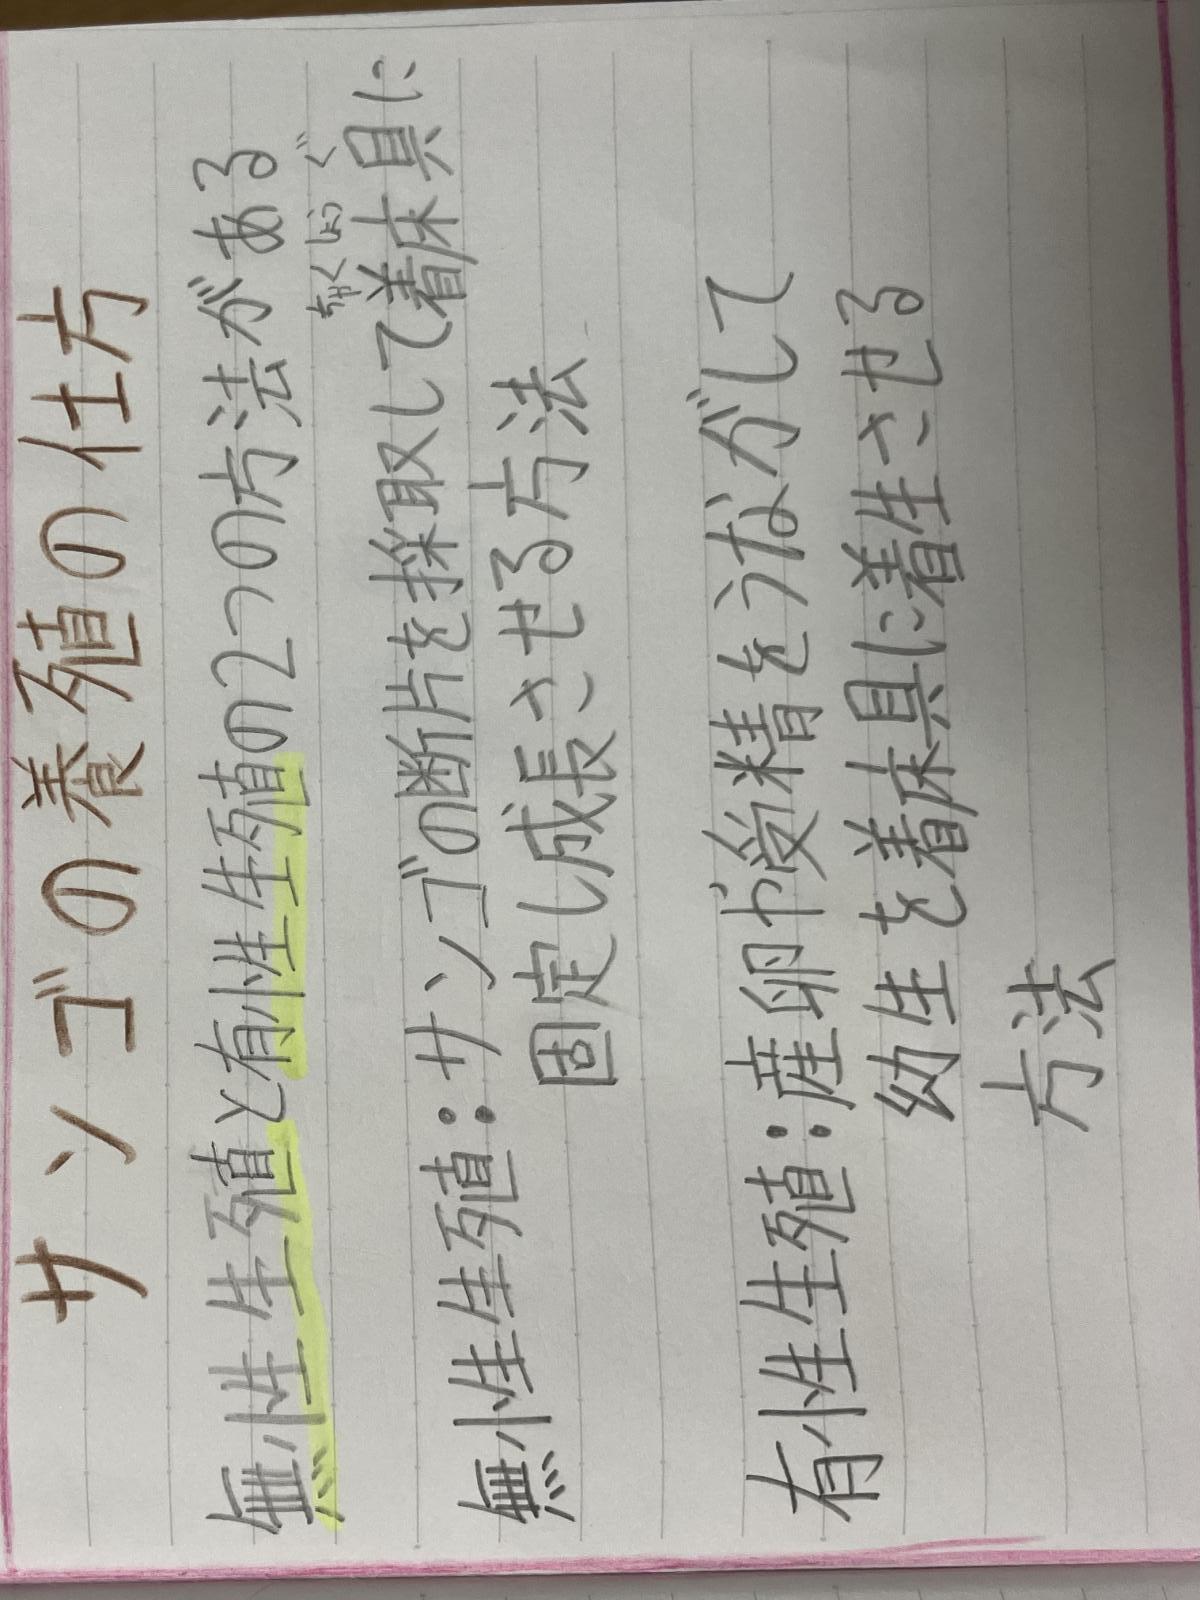 サンゴの養殖の仕方
無性生殖と有性生殖の2つの方法がある
ちゃくしょうぐ
無性生殖:サンゴの断片を採取して着床具に
固定し成長させる方法
有性生殖:産卵や受精をうながして
幼生を着床具に着生させる
方法